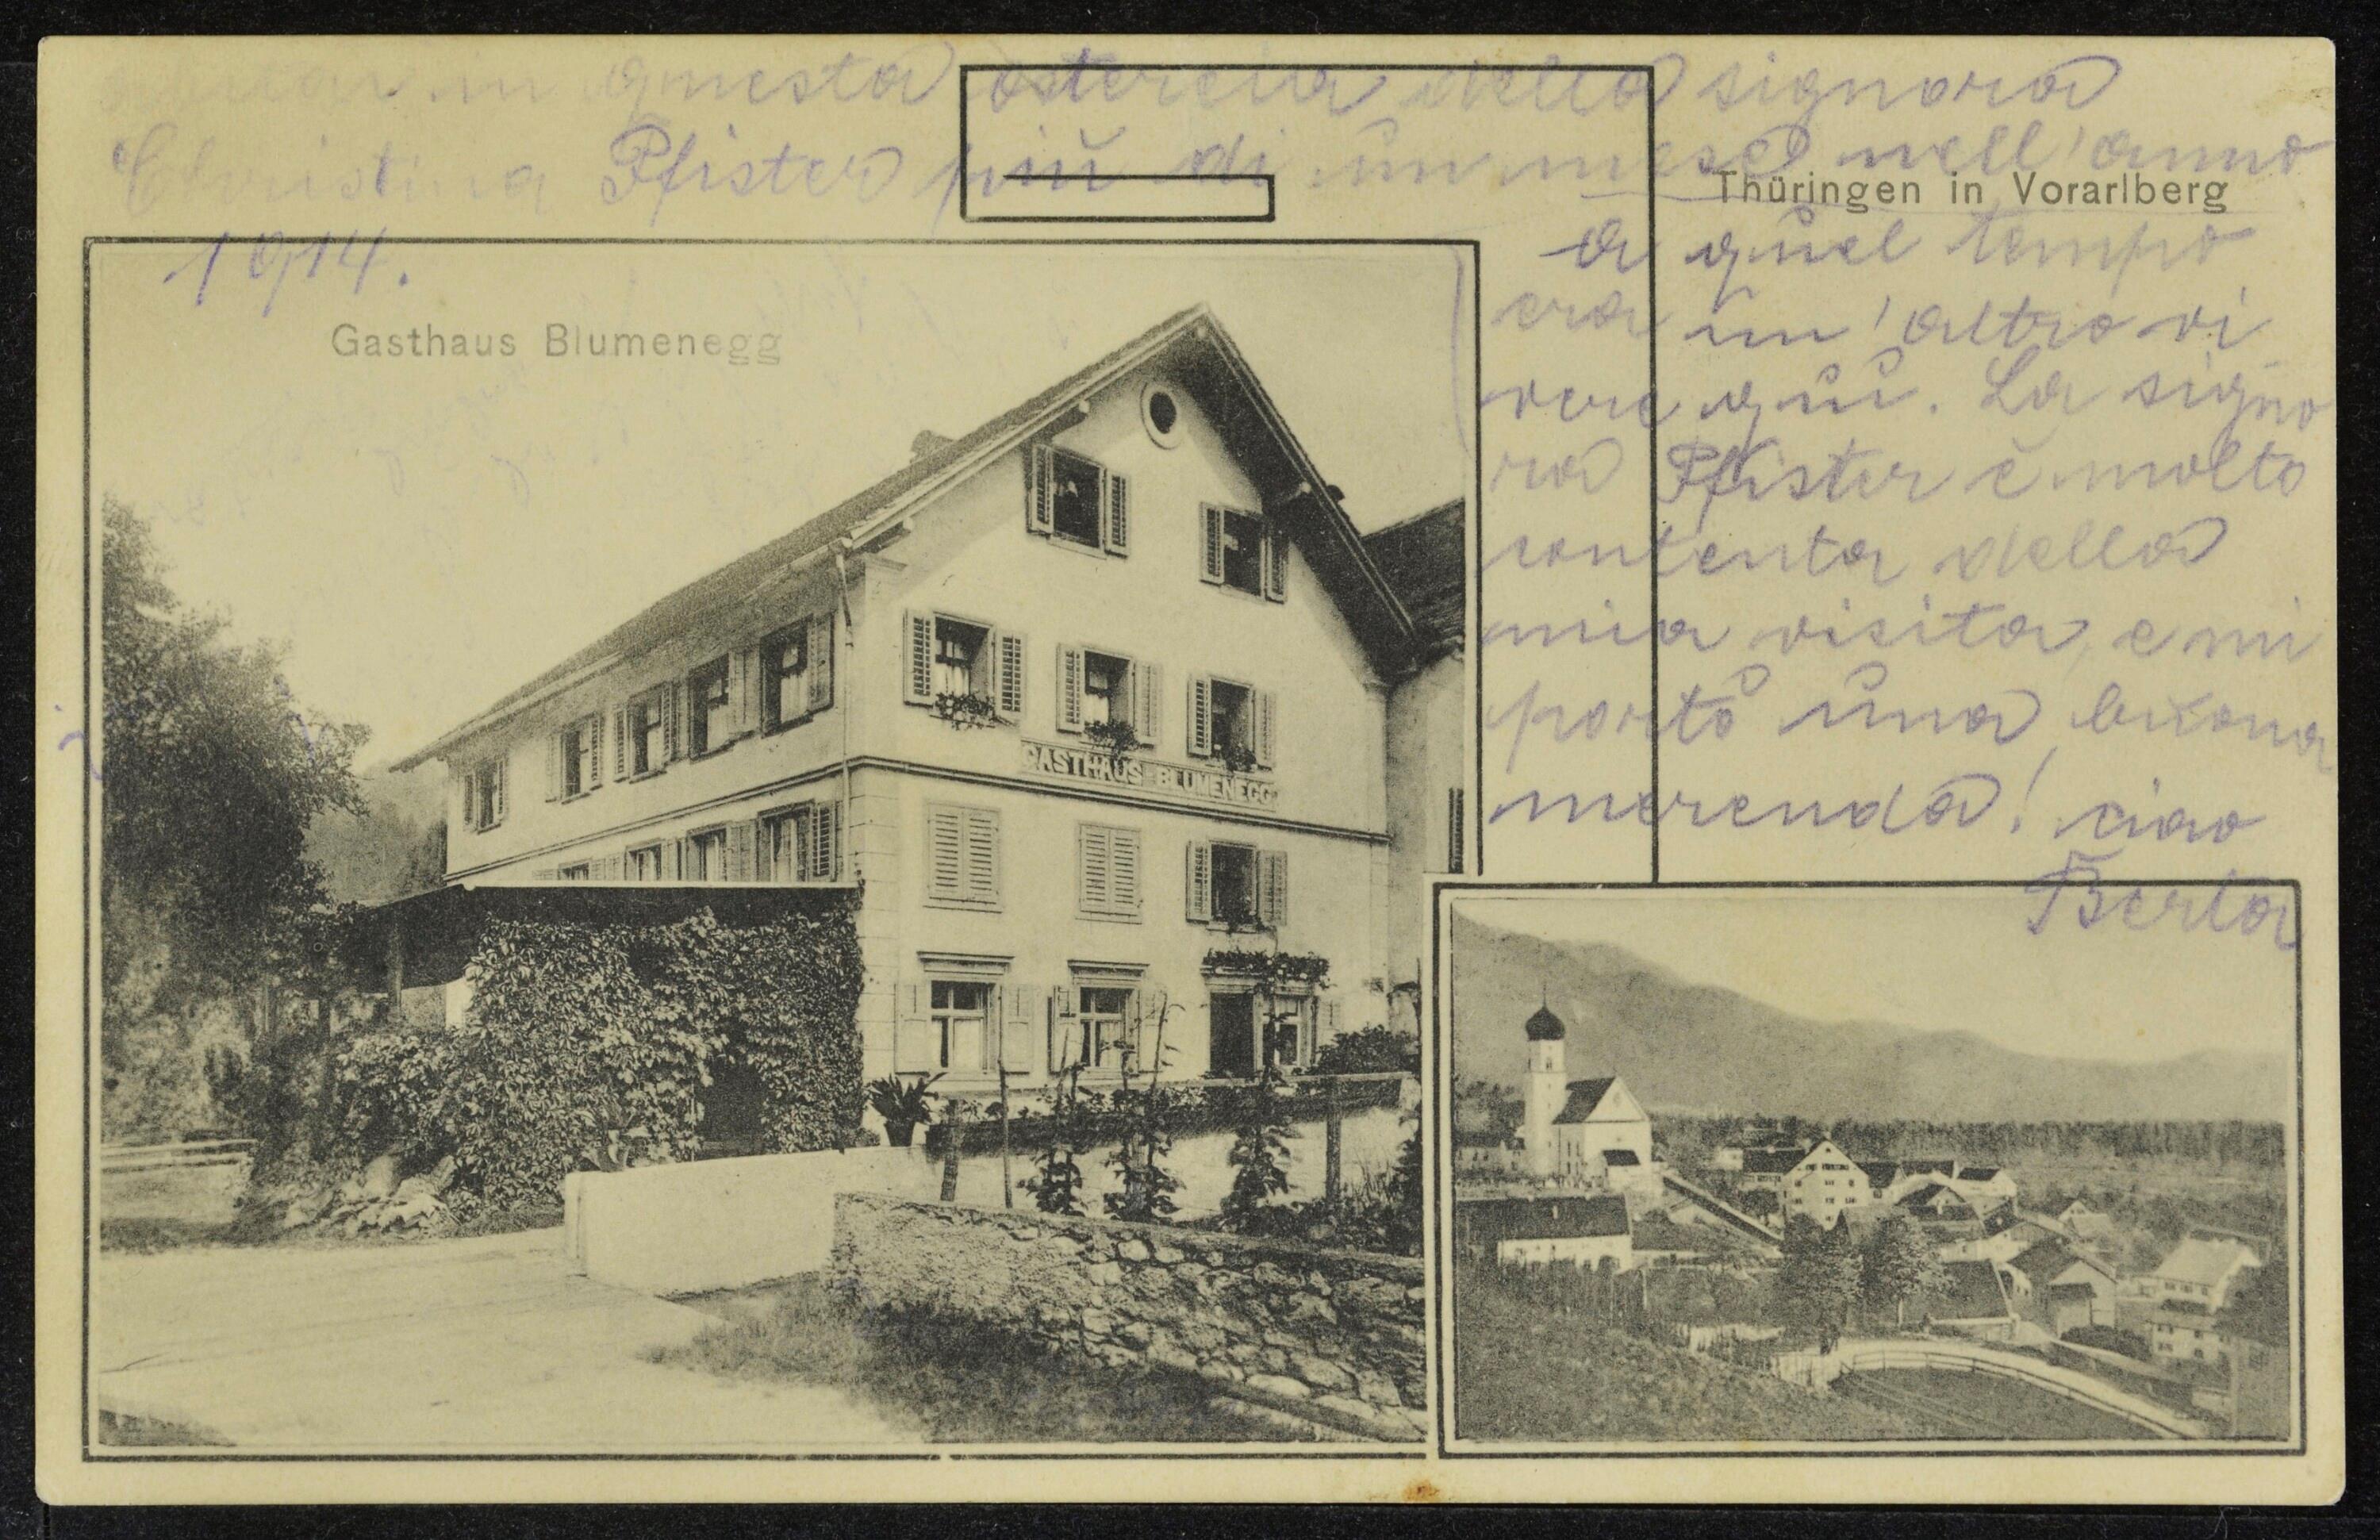 in questa ostereia della signora
Christina Pfister più di un mese nell'anno
1914.
Thüringen in Vorarlberg
a quel tempo
era un'altro vi
vere qui. La signo
ra Pfister è molto
contenta della
mia visita, e mi
portò una buona
merenda! ciao
Berta
Gasthaus Blumenegg
GASTHAUS BLUMENEGG